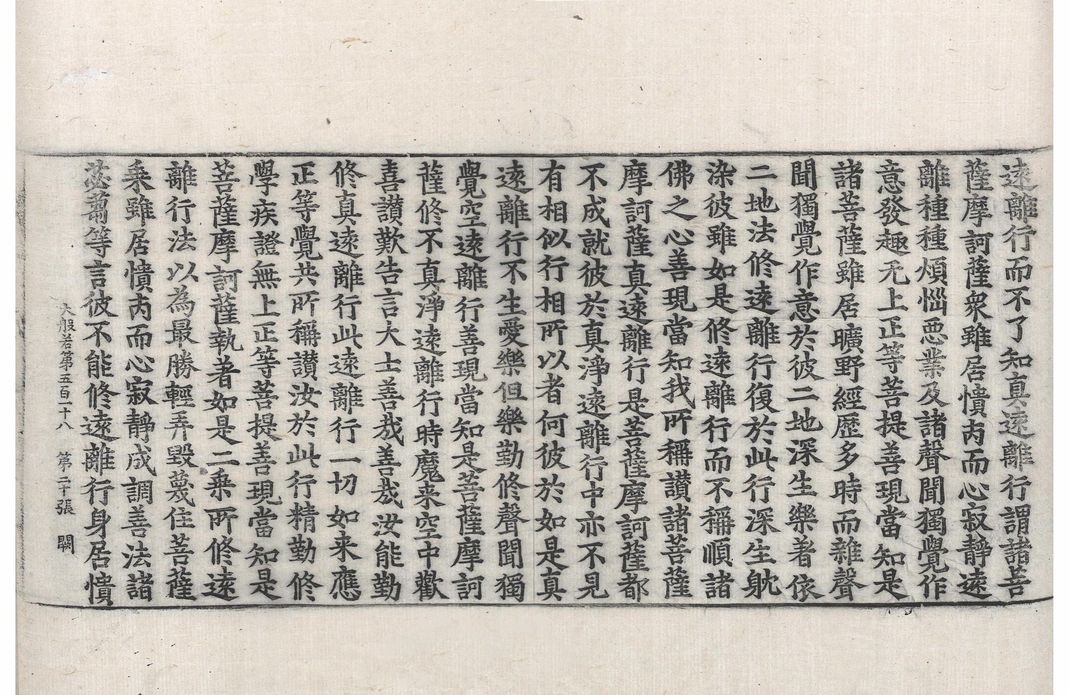 遠離行而不了知真遠離行謂諸菩
薩摩訶薩衆雖居憒丙而心寂靜遠
離種種煩惱惡業及諸聲聞獨覺作
意發趣无上正等菩提善現當知是
諸菩薩雖居曠野經歷多時而雜聲
聞獨覺作意於彼二地深生樂著依
二地法修遠離行復於此行深生躭
染彼雖如是修遠離行而不稱順諸
佛之心善現當知我所稱讃諸菩薩
摩訶薩真遠離行是菩薩摩訶薩都
不成就彼於真淨遠離行中亦不見
有相似行相所以者何彼於如是真
遠離行不生愛樂但樂勤修聲聞獨
覺空遠離行善現當知是菩薩摩訶
薩修不真淨遠離行時魔来空中歡
喜讃歎告言大士善哉善哉汝能勤
修真遠離行此遠離行一切如来應
正等覺共所稱讃汝於此行精勤修
學疾證無上正等菩提善現當知是
菩薩摩訶薩執著如是二乘所修遠
離行法以為最勝輕弄毀蔑住菩薩
乘雖居憒丙而心寂靜成調善法諸
苾蒭等言彼不能修遠離行身居憒
大般若第五百一十八 第二十張 闕